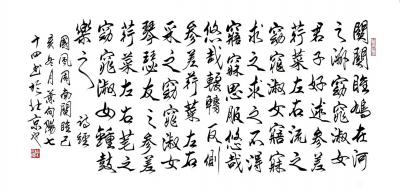 關關雎鳩在河
之洲窈窕淑女
君子好逑參差
荇菜左右流之
窈窕淑女寤寐
求之求之不得
寤寐思服悠哉
悠哉輾轉反側
參差荇菜左右
采之窈窕淑女
琴瑟友之參差
荇菜左右芼之
窈窕淑女鐘鼓
樂之 詩經
國風周南關雎己
亥冬月葉向陽七
十四書於北京也